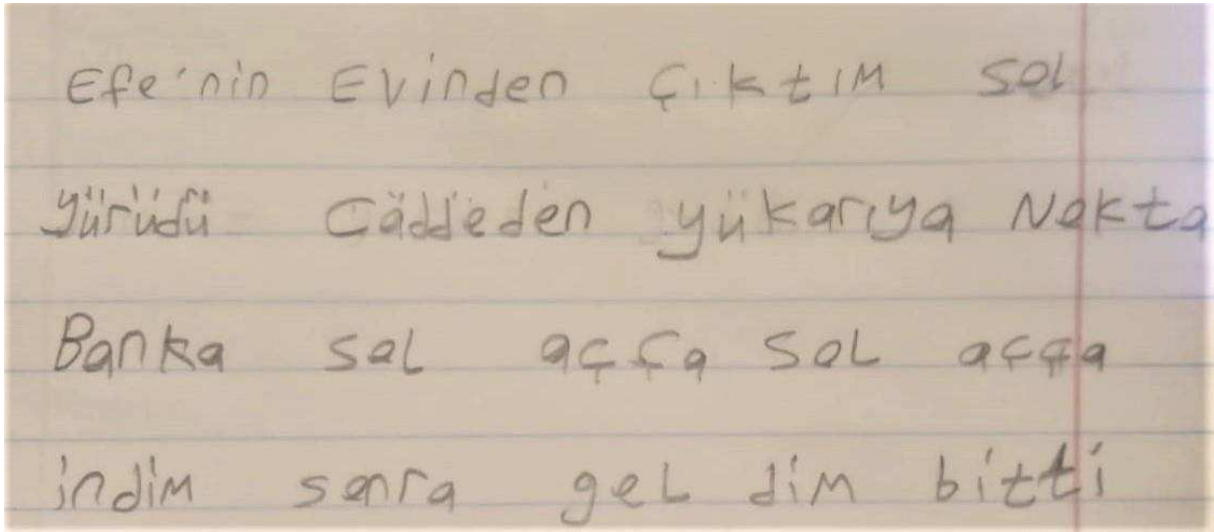 Efe'nin Evinden Çıktım sol
yürüdü Cäddeden yükarıya Nokta
Banka sol açça sol açça
indim sonra gel dim bitti